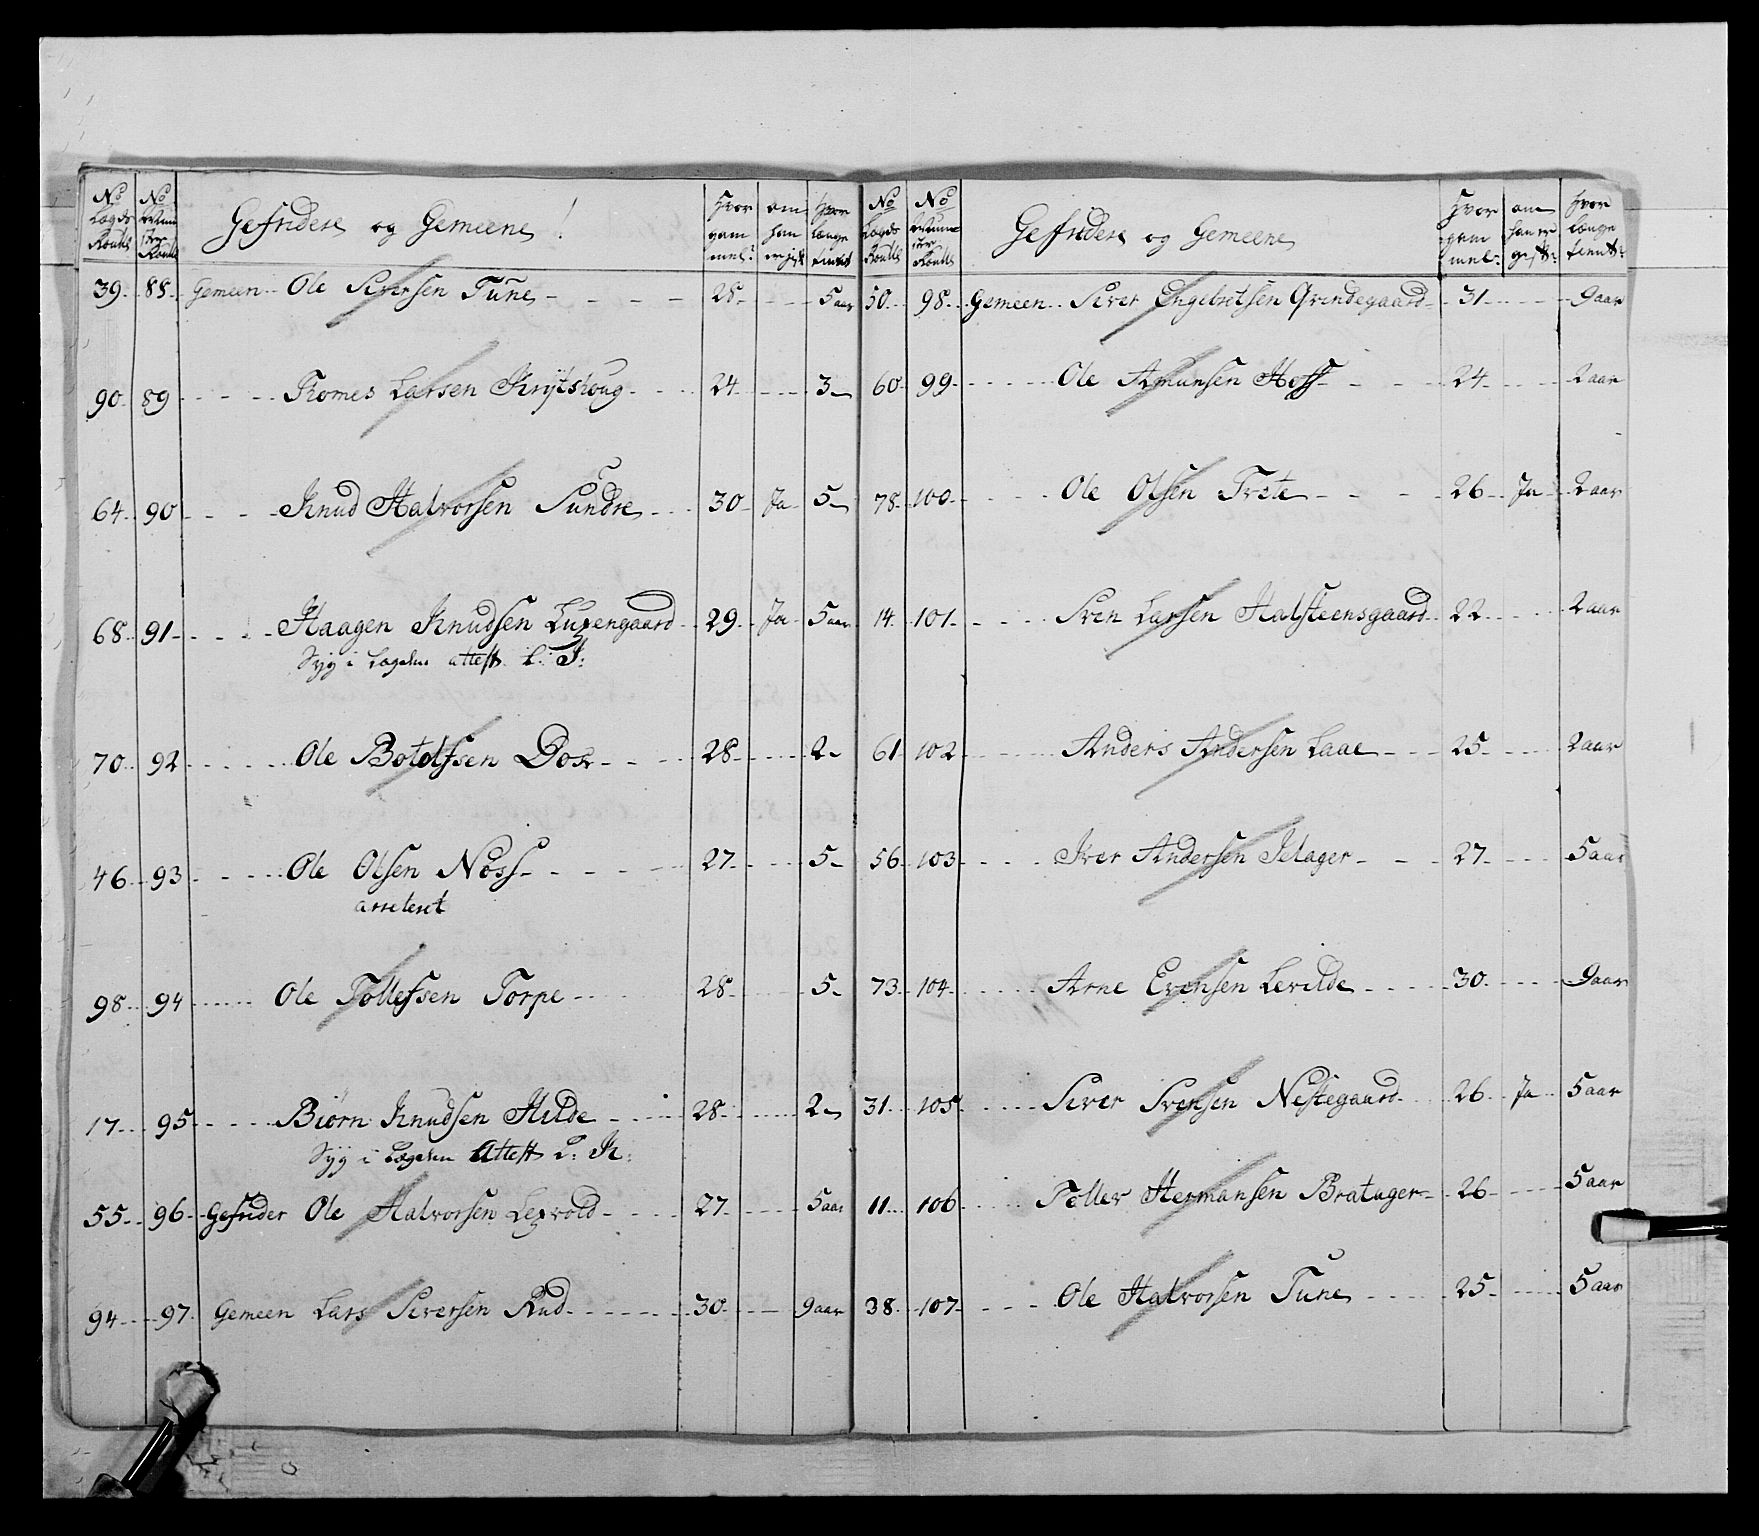 No Lægds Roulle No Nummer Roulle Gefridere og Gemeene Hvor gammel? om han er gift Hvor længe tient
39 88 Gemeen Ole Siversen Tune 28 5 aar
90 89 Tomes Larsen 24 3
64 90 Knud Halvorsen Sundre 30 Ja 5
68 91 Haagen Knudsen Luxengaard 29 Ja 5 aar
Syg i Lægden attest L: I:
70 92 Ole Botolfsen 28 2
46 93 Ole Olsen Nøss 27 5
arreteret
98 94 Ole Tollefsen Torpe 28 5
17 95 Biørn Knudsen Hilde 28 2
Syg i Lægden Attest L: K:
55 96 Gefrider Ole Halvorsen Lexvold 27 5 aar
94 97 Gemeen Lars Siversen Rud 30 9 aar
No Lægds Roulle No Nummer Roulle Gefridere og Gemeene Hvor gammel: om han er gift: Hvor længe tient:
50 98 Gemeen Siver Engebretsen Grindegaard 31 9 aar
60 99 Ole Amunsen Hoff 24 2 aar
78 100 Ole Olsen Trete 26 Ja 2 aar
14 101 Sven Larsen Halsteensgaard 22 2 aar
61 102 Anders Andersen Laae 25 2 aar
56 103 Iver Andersen 27 5 aar
73 104 Arne Evensen Levilde 30 9 aar
31 105 Siver Svensen Nestegaard 26 Ja 5 aar
11 106 Toller Hermansen Bratager 26 5 aar
38 107 Ole Halvorsen Tune 25 5 aar